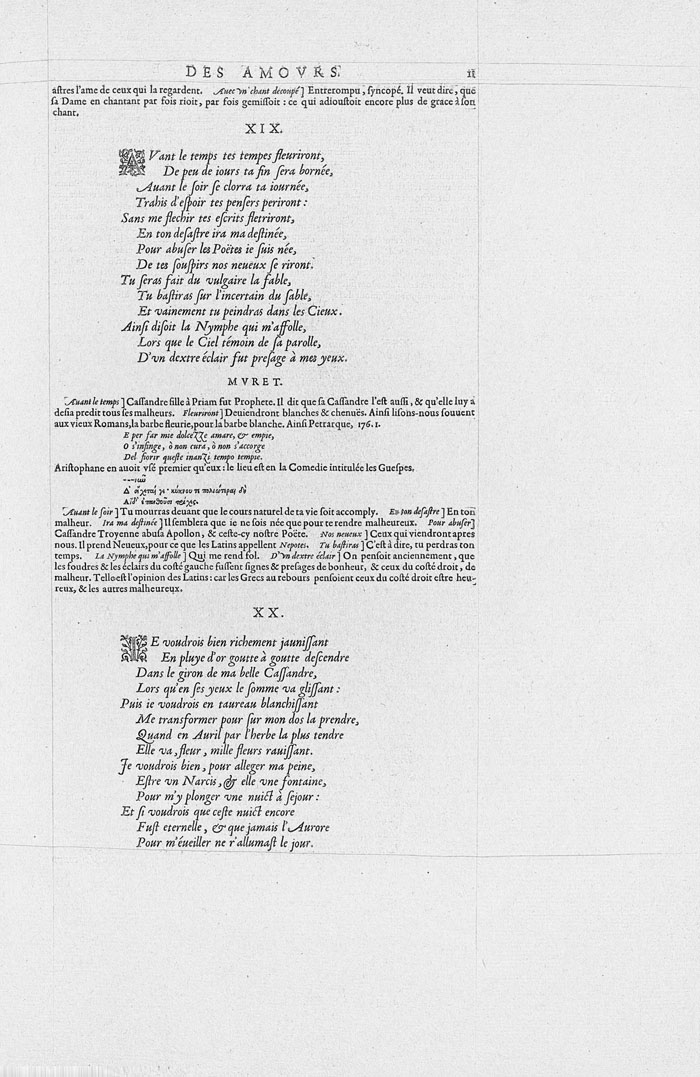 DES AMOVRS. 11
aſtres l'ame de ceux qui la regardent. Auec vn' chant decoupé] Entrerompu, ſyncopé. Il veut dire, que
ſa Dame en chantant par fois rioit, par fois gemiſſoit : ce qui adiouſtoit encore plus de grace à ſon
chant.
XIX.
AVant le temps tes tempes fleuriront,
De peu de iours ta fin ſera bornée,
Auant le ſoir ſe clorra ta iournée,
Trahis d'eſpoir tes penſers periront :
Sans me flechir tes eſcrits fletriront,
En ton deſaſtre ira ma deſtinée,
Pour abuſer les Poëtes ie ſuis née,
De tes ſouſpirs nos neueux ſe riront.
Tu ſeras fait du vulgaire la fable,
Tu baſtiras ſur l'incertain du ſable,
Et vainement tu peindras dans les Cieux.
Ainſi diſoit la Nymphe qui m'affolle,
Lors que le Ciel témoin de ſa parolle,
D'vn dextre éclair fut preſage à mes yeux.
MVRET.
Auant le temps] Caſſandre fille à Priam fut Prophete. Il dit que ſa Caſſandre l'eſt auſſi, & qu'elle luy a
deſia predit tous ſes malheurs. Fleuriront] Deuiendront blanches & chenuës. Ainſi liſons-nous ſouuent
aux vieux Romans, la barbe fleurie, pour la barbe blanche. Ainſi Petrarque, 176. 1.
E per far mie dolcezze amare, & empie,
O s'infinge, ò non cura, ò non s'accorge
Del fiorir queſte inanzi tempo tempie.
Ariſtophane en auoit vſé premier qu'eux : le lieu eſt en la Comedie intitulée les Gueſpes.
Auant le ſoir] Tu mourras deuant que le cours naturel de ta vie ſoit accomply. En ton deſaſtre] En ton
malheur. Ira ma deſtinée] Il ſemblera que ie ne ſois née que pour te rendre malheureux. Pour abuſer]
Caſſandre Troyenne abuſa Apollon, & ceſte-cy noſtre Poëte. Nos neueux] Ceux qui viendront apres
nous. Il prend Neueux, pour ce que les Latins appellent Nepotes. Tu baſtiras] C'eſt à dire, tu perdras ton
temps. La Nymphe qui m'affolle] Qui me rend fol. D'vn dextre éclair] On penſoit anciennement, que
les foudres & les éclairs du coſté gauche fuſſent ſignes & preſages de bonheur, & ceux du coſté droit, de
malheur. Telle eſt l'opinion des Latins : car les Grecs au rebours penſoient ceux du coſté droit eſtre heu-
reux, & les autres malheureux.
XX.
IE voudrois bien richement jauniſſant
En pluye d'or goutte à goutte deſcendre
Dans le giron de ma belle Caſſandre,
Lors qu'en ſes yeux le ſomme va gliſſant :
Puis ie voudrois en taureau blanchiſſant
Me transformer pour ſur mon dos la prendre,
Quand en Auril par l'herbe la plus tendre
Elle va, fleur, mille fleurs rauiſſant.
Je voudrois bien, pour alleger ma peine,
Eſtre vn Narcis, & elle vne fontaine,
Pour m'y plonger vne nuict à ſejour :
Et ſi voudrois que ceſte nuict encore
Fuſt eternelle, & que jamais l'Aurore
Pour m'éueiller ne r'allumaſt le jour.